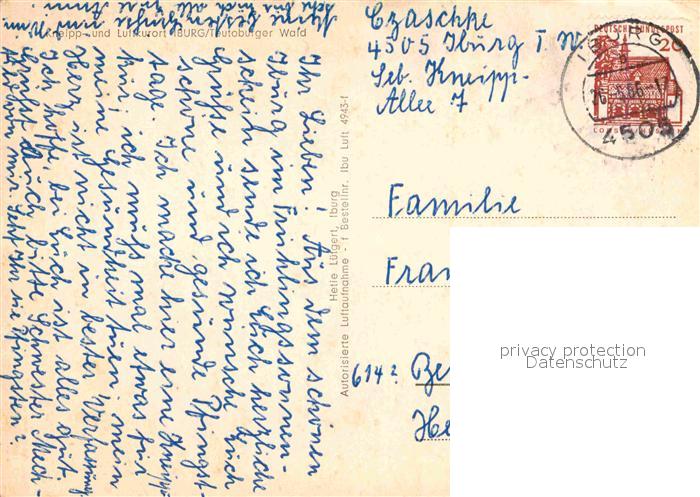 Kneipp- und Luftkurort IBURG/Teutoburger Wald
Ihr Lieben! Aus dem schönen
Iburg im Frühlingssonnen-
schein sende ich Euch herzliche
Grüße und ich wünsche Euch
schöne und gesunde Pfingst-
tage. Ich mache hier eine Kneipp-
kur, ich muß mal etwas für
meine Gesundheit tuen, mein
Herz ist nicht in bester Verfassung
Ich hoffe, bei Euch ist alles gut.
Grüßt auch bitte Schwester Mech-
Seht Ihr sie Pfingsten?
Hetie Lürgert, Iburg
Autorisierte Luftaufnahme - f Bestellnr. Ibu Luft 4943-f
Czaschke
4505 Iburg T. W.
Seb. Kneipp-
Allee 7
DEUTSCHE BUNDESPOST
20
IBURG
4505
Familie
Fran
614?
Be
He
privacy protection
Datenschutz